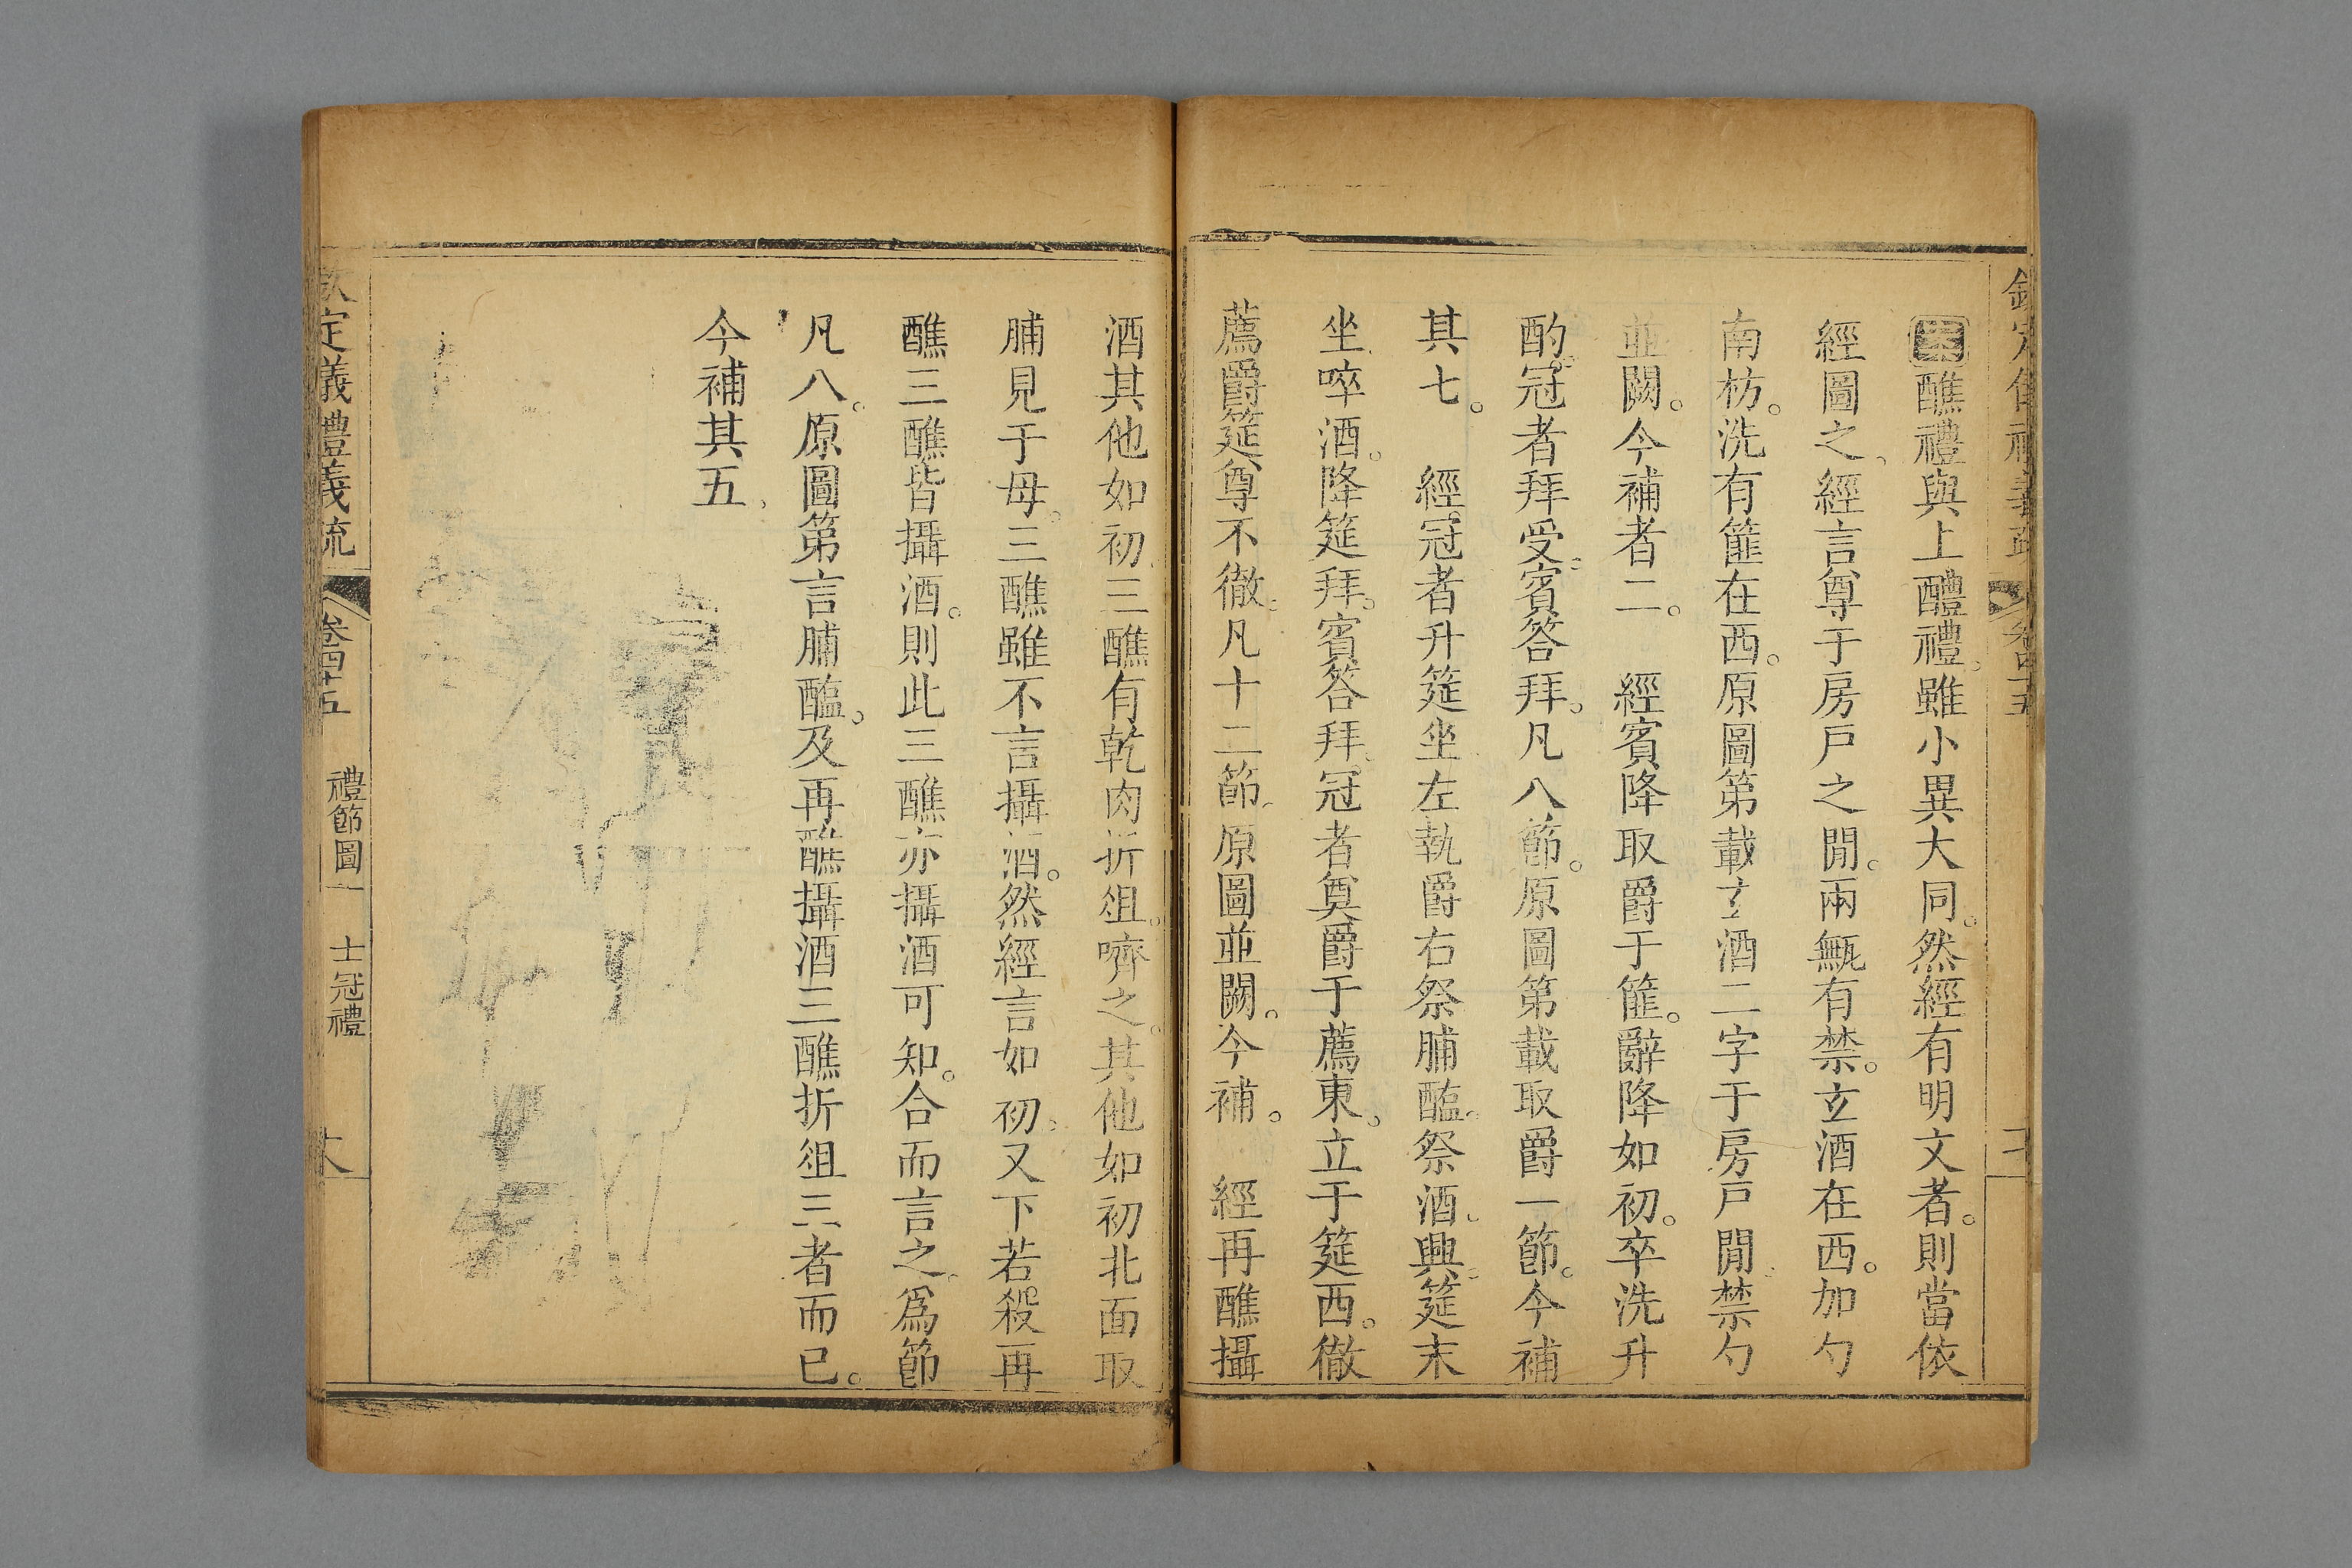 醮禮與上醴禮。雖小異大同。然經有明文者。則當依
經圖之、經言尊于房戶之閒。兩甒有禁。玄酒在西。加勺
南枋。洗有篚在西。原圖第載玄酒二字于房戶閒。禁勺
並闕。今補者二。　經賓降取爵于篚。辭降如初。卒洗升
酌。冠者拜受。賓答拜。凡八節。原圖第載取爵一節。今補
其七。　經。冠者升筵坐左執爵右祭脯醢。祭酒。興。筵末
坐啐酒。降筵拜。賓答拜。冠者奠爵于薦東。立于筵西。徹
薦爵筵尊不徹。凡十二節。原圖並闕。今補。　經再醮攝
酒其他如初。三醮有乾肉折俎。嚌之。其他如初北面取
脯見于母。三醮雖不言攝酒。然經言如初。又下若殺。再
醮三醮皆攝酒。則此三醮亦攝酒可知。合而言之。爲節
凡八。原圖第言脯醢。及再醮攝酒三醮折俎三者而已。
今補其五、
定儀禮義疏
卷四十五
禮節圖
士冠禮